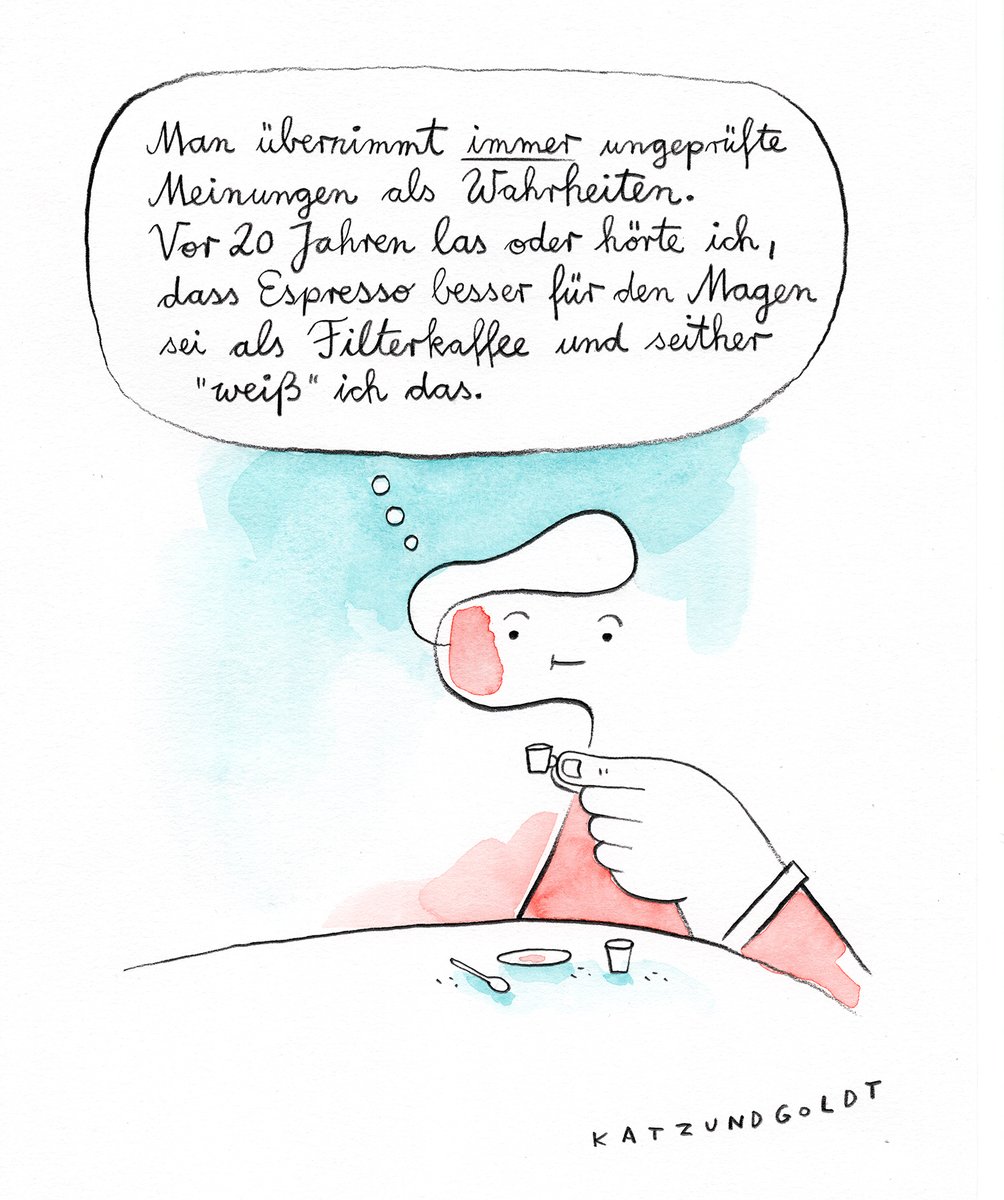 Man übernimmt immer ungeprüfte
Meinungen als Wahrheiten.
Vor 20 Jahren las oder hörte ich,
dass Espresso besser für den Magen
sei als Filterkaffee und seither
"weiß" ich das.
KATZUNDGOLDT